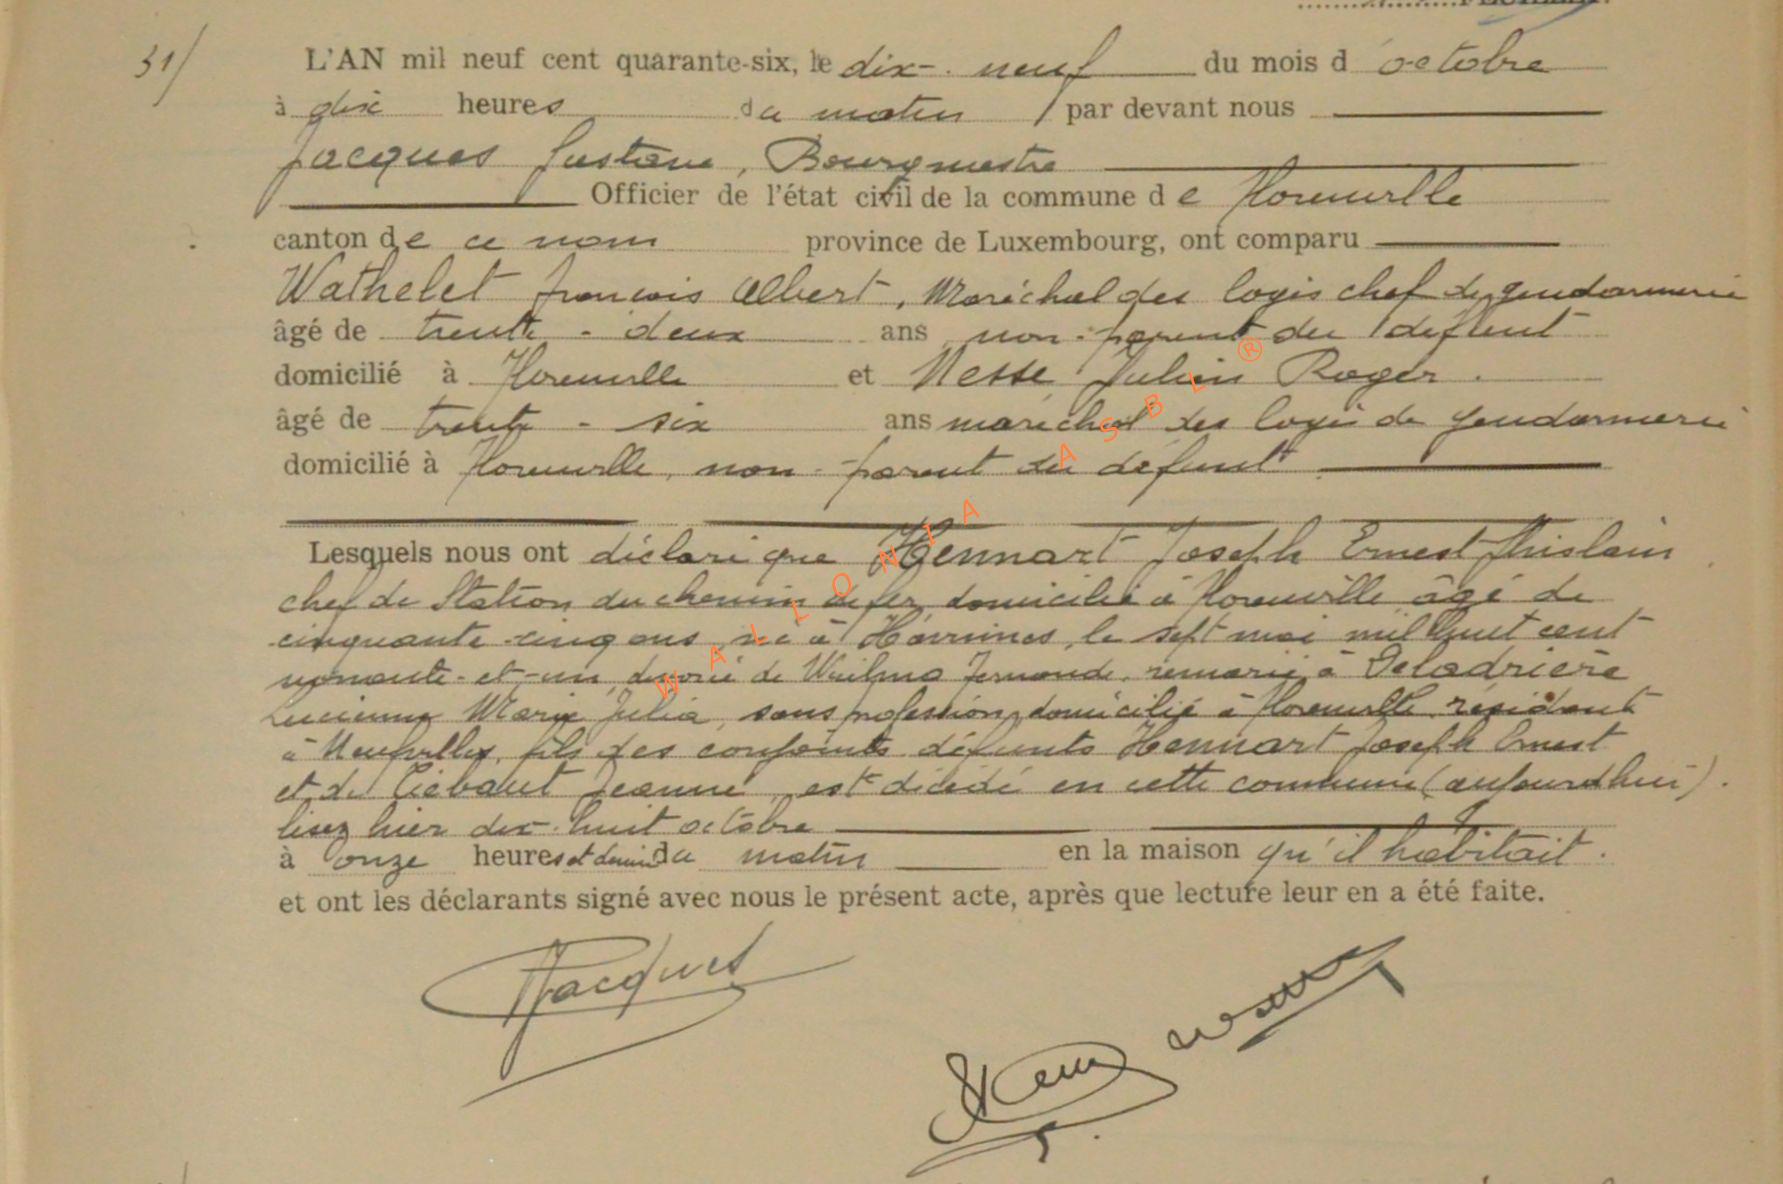 31/
L'AN mil neuf cent quarante-six, le dix-neuf du mois d'octobre
à dix heures du matin par devant nous
Jacques Gustave, Bourgmestre
Officier de l'état civil de la commune de Florenville
canton de ce nom province de Luxembourg, ont comparu
Wathelet François Albert, Maréchal des logis chef de gendarmerie
âgé de trente-deux ans non-parent du défunt
domicilié à Florenville et Nesse Julien Roger.
âgé de trente-six ans maréchal des logis de gendarmerie
domicilié à Florenville, non-parent du défunt
Lesquels nous ont déclaré que Hennart Joseph Ernest Ghislain
chef de Station du chemin de fer, domicilié à Florenville âgé de
cinquante-cinq ans, né à Havinnes, le sept mai mil huit cent
nonante-et-un, divorcé de Fernande, remarié à Deladrière
Lucienne Marie Julia, sans profession, domicilié à Florenville résidant
à Neufvilles, fils des conjoints défunts Hennart Joseph Ernest
et de Liébaut Jeanne, est décédé en cette commune (aujourd'hui).
lisez hier dix-huit octobre
à onze heures et demie du matin en la maison qu'il habitait.
et ont les déclarants signé avec nous le présent acte, après que lecture leur en a été faite.
Jacques
WALLONIA ASBL ®